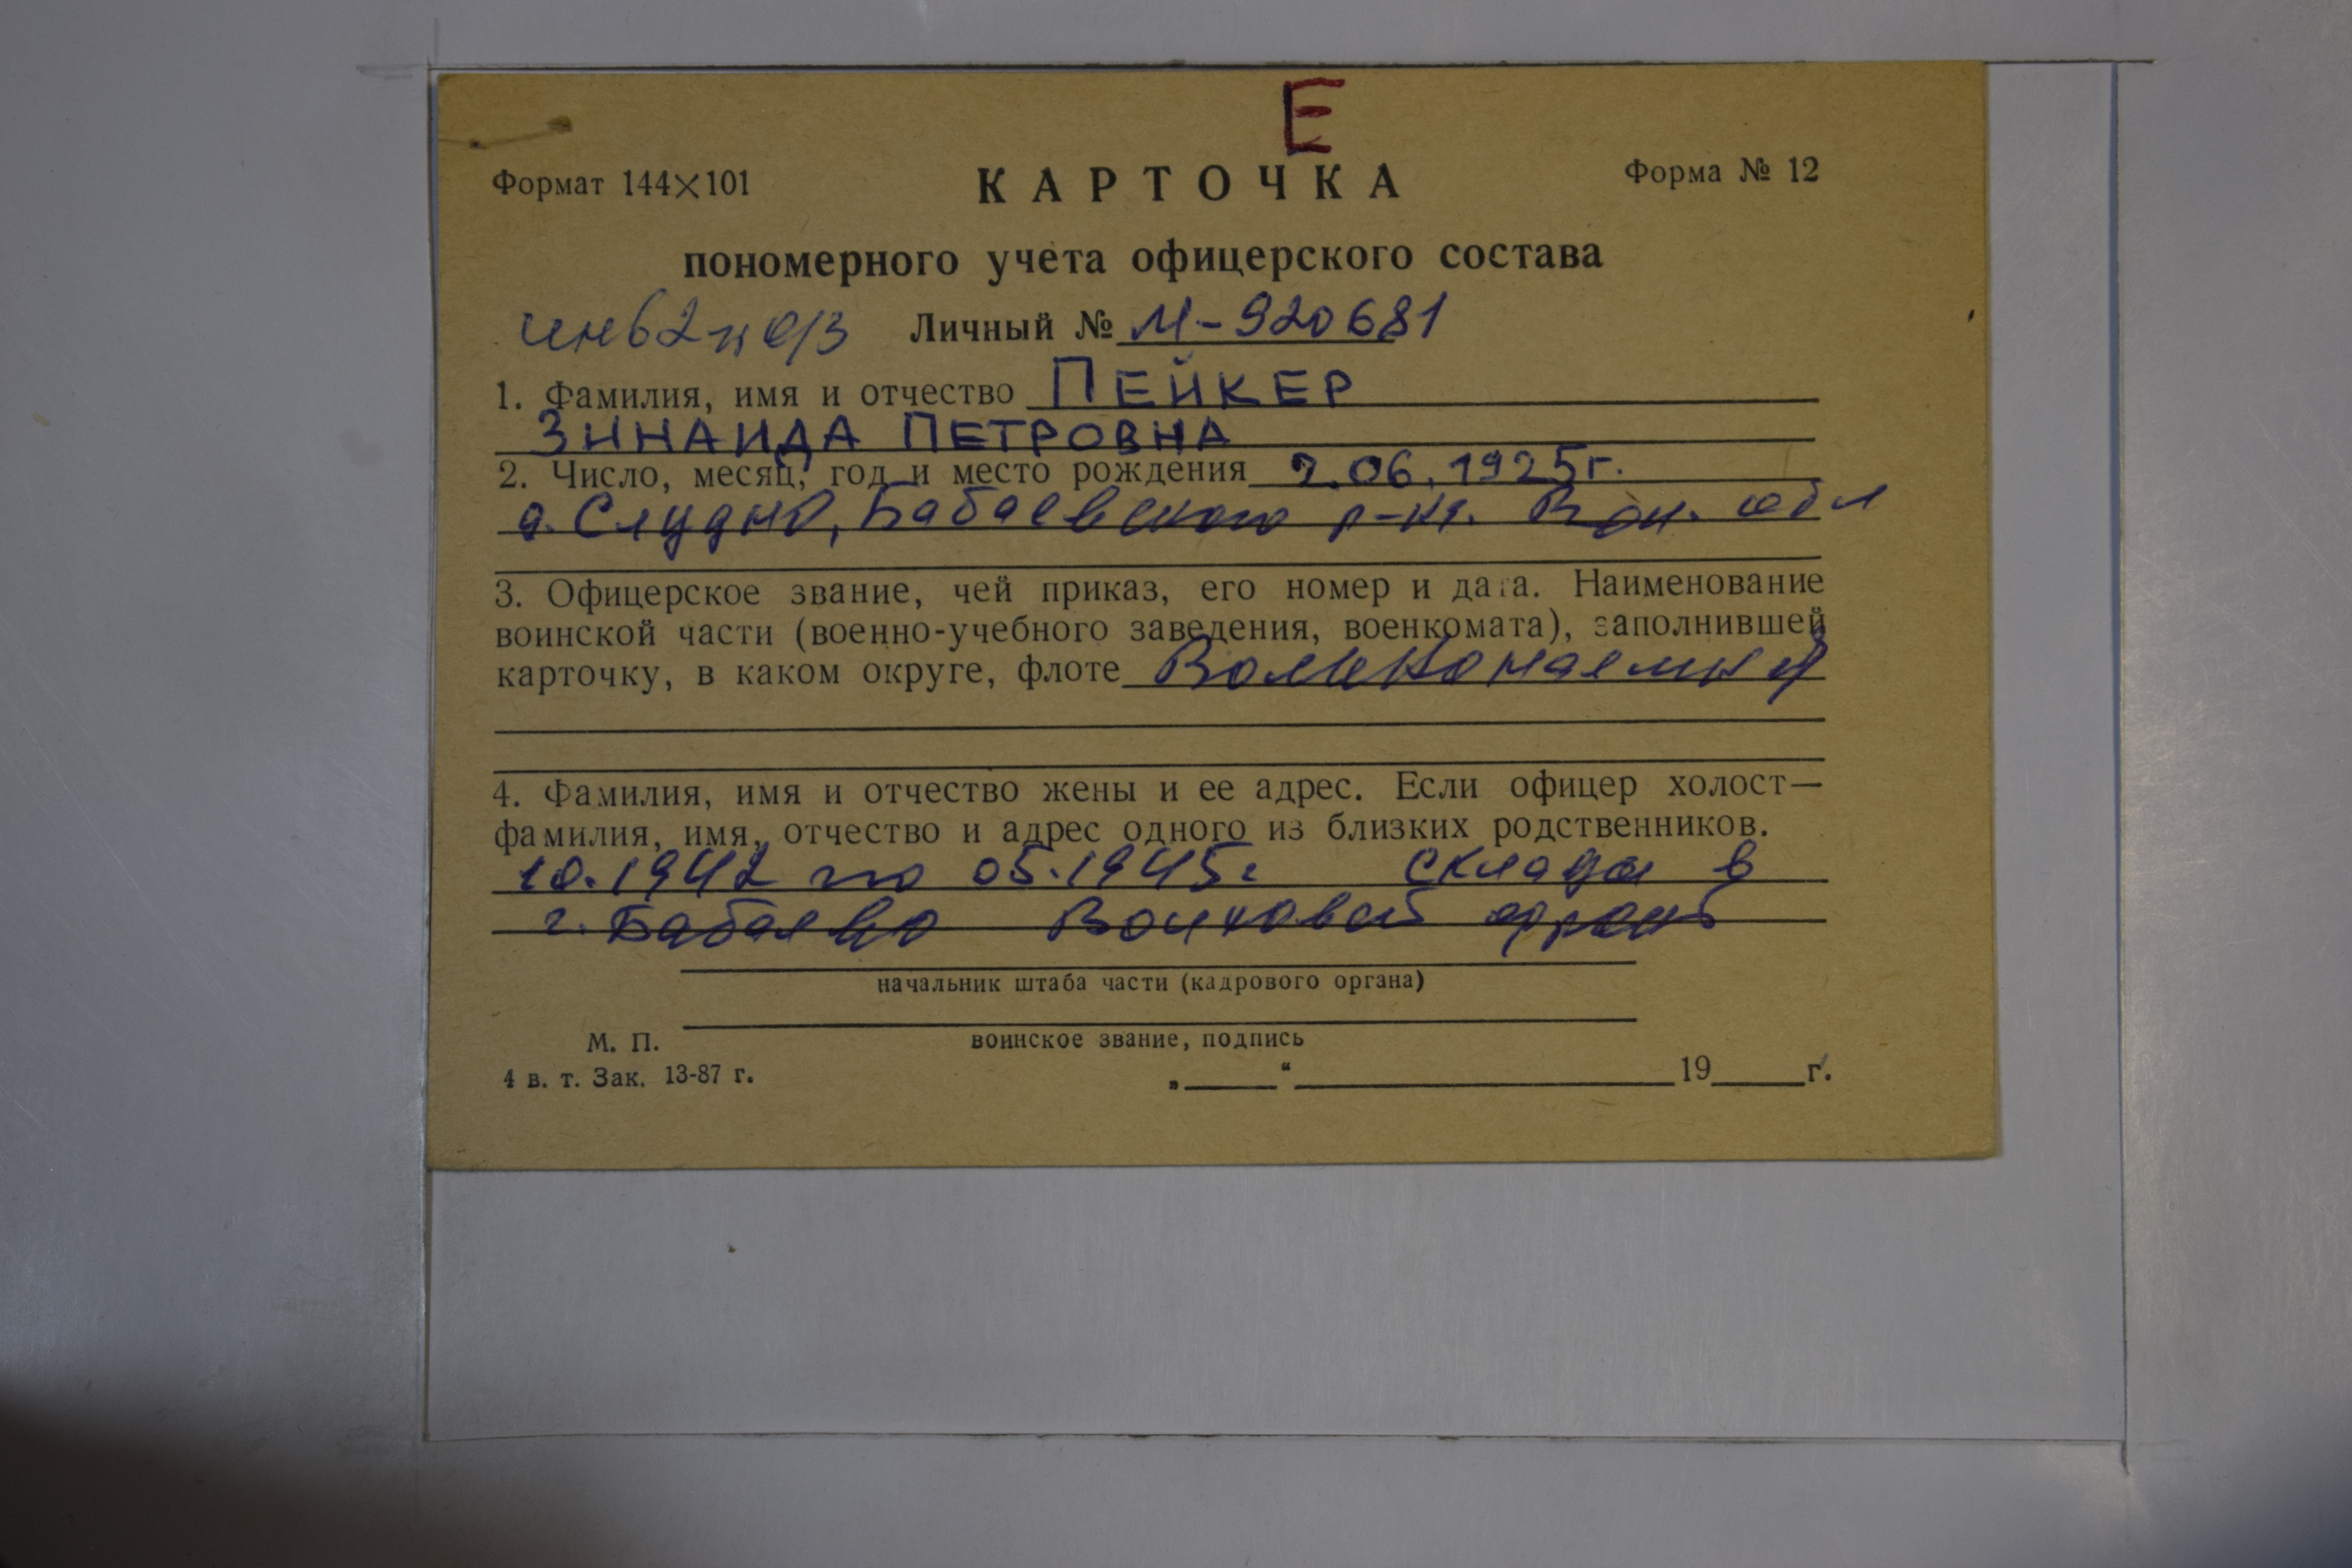 Е
Формат 144×101
КАРТОЧКА
Форма № 12
пономерного учета офицерского состава
инв 2 Личный № М-920681
1. Фамилия, имя и отчество ПЕЙКЕР
ЗИНАИДА ПЕТРОВНА
2. Число, месяц, год и место рождения 2.06.1925г.
д. Слудно, Бабаевского р-на. Вол. обл
3. Офицерское звание, чей приказ, его номер и дата. Наименование
воинской части (военно-учебного заведения, военкомата), заполнившей
карточку, в каком округе, флоте Вольнонаемная
4. Фамилия, имя и отчество жены и ее адрес. Если офицер холост—
фамилия, имя, отчество и адрес одного из близких родственников.
10.1942 по 05.1945г склады в
г. Бабаево Волховский фронт
начальник штаба части (кадрового органа)
М. П.
воинское звание, подпись
4 в. т. Зак. 13-87 г.
„ “ 19 г.